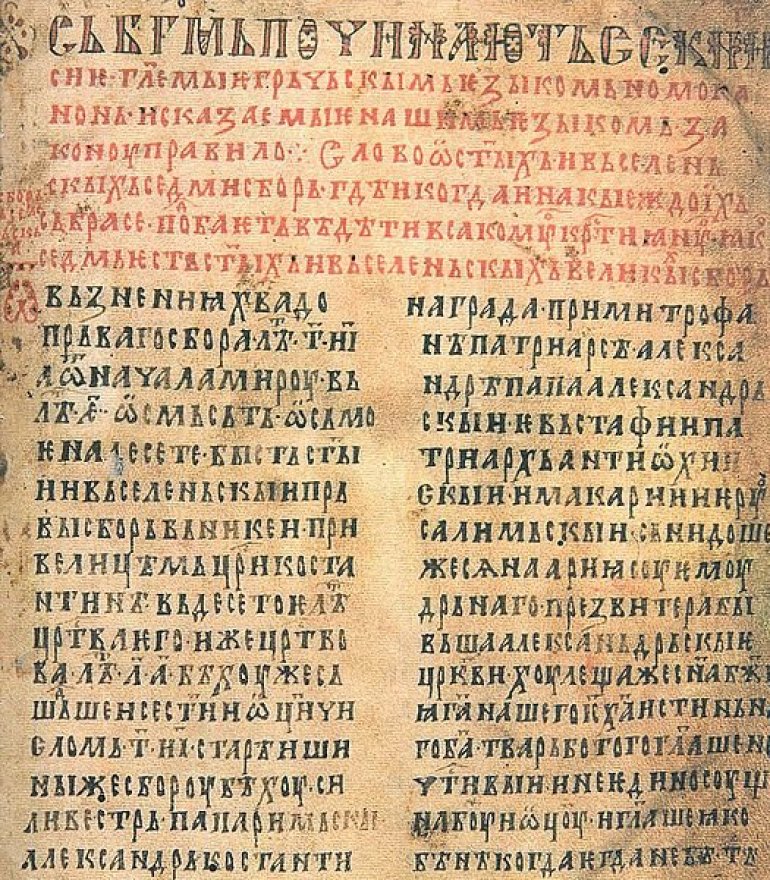 СЬ Б҃ГѠМЬ ПОЧИНАЮТЬ СЕ К
сиꙗ г҃лѥмыѥ грьчьскымь ѥзыкомь номока
нонь · и сказаѥмыѥ нашимь ѥзыкомь за
коноу правило ⁘ Слово ѡ ст҃ыхь и вьселень
скыхь седми сборь · гдѣ и когда и на кыеждо ихь
сьбрасе · побаѥть вѣдѣти всакомꙋ
седмь ѥсть ст҃ыхь и вьселеньскыхь великыⷯ сьборь
вьзненниꙗ х҃ва до
прьваго сбора лѣⷮ · т҃ · и҃і
а ѿ начала мироу · вь
лѣⷮ · ѥ҃ · ѡсмьсьть · ѡсьмо
ѥ надесете · бысть ст҃ы
и и вьселеньскыи прь
вы сборь вь никеи · при
велицѣмь цр҃и коста
нтинѣ · вь десетоѥ лѣⷮ
црⷭ҇тва ѥго · иже црⷭ҇тво
ва лѣⷮ · л҃ · а҃ · бѣхоу же сь
шьⷣшеи се ст҃ии ѡц҃и чи
сломь · т҃ · и҃і · старѣиши
ны же сбороу бѣхоу · си
ливестрь · папа римьскы
александрь костанти
награда · при митрофа
нѣ патриарсѣ · алекса
ндрѣ папа александрь
скыи · ѥвьстафии па
триархь антиѡхии
скыи · и макарии иѥрⷭ҇ꙋ
салимьскыи · снидоше
же сѧ на ариꙗ соуемоу
дрьнаго · презвитера бы
вьша александрьскыѥ
цр҃кви · хоулеща же сн҃а бж҃и
ꙗ г҃а нашего іⷭ҇ х҃а истиньна
го б҃а · тварь бо того г҃лаше по
чти · вь ини и не ѥдиносоущ
на боу и ѡц҃оу · и г҃лаше ꙗко
бѣ нѣкогда ѥгда не бѣ тъ